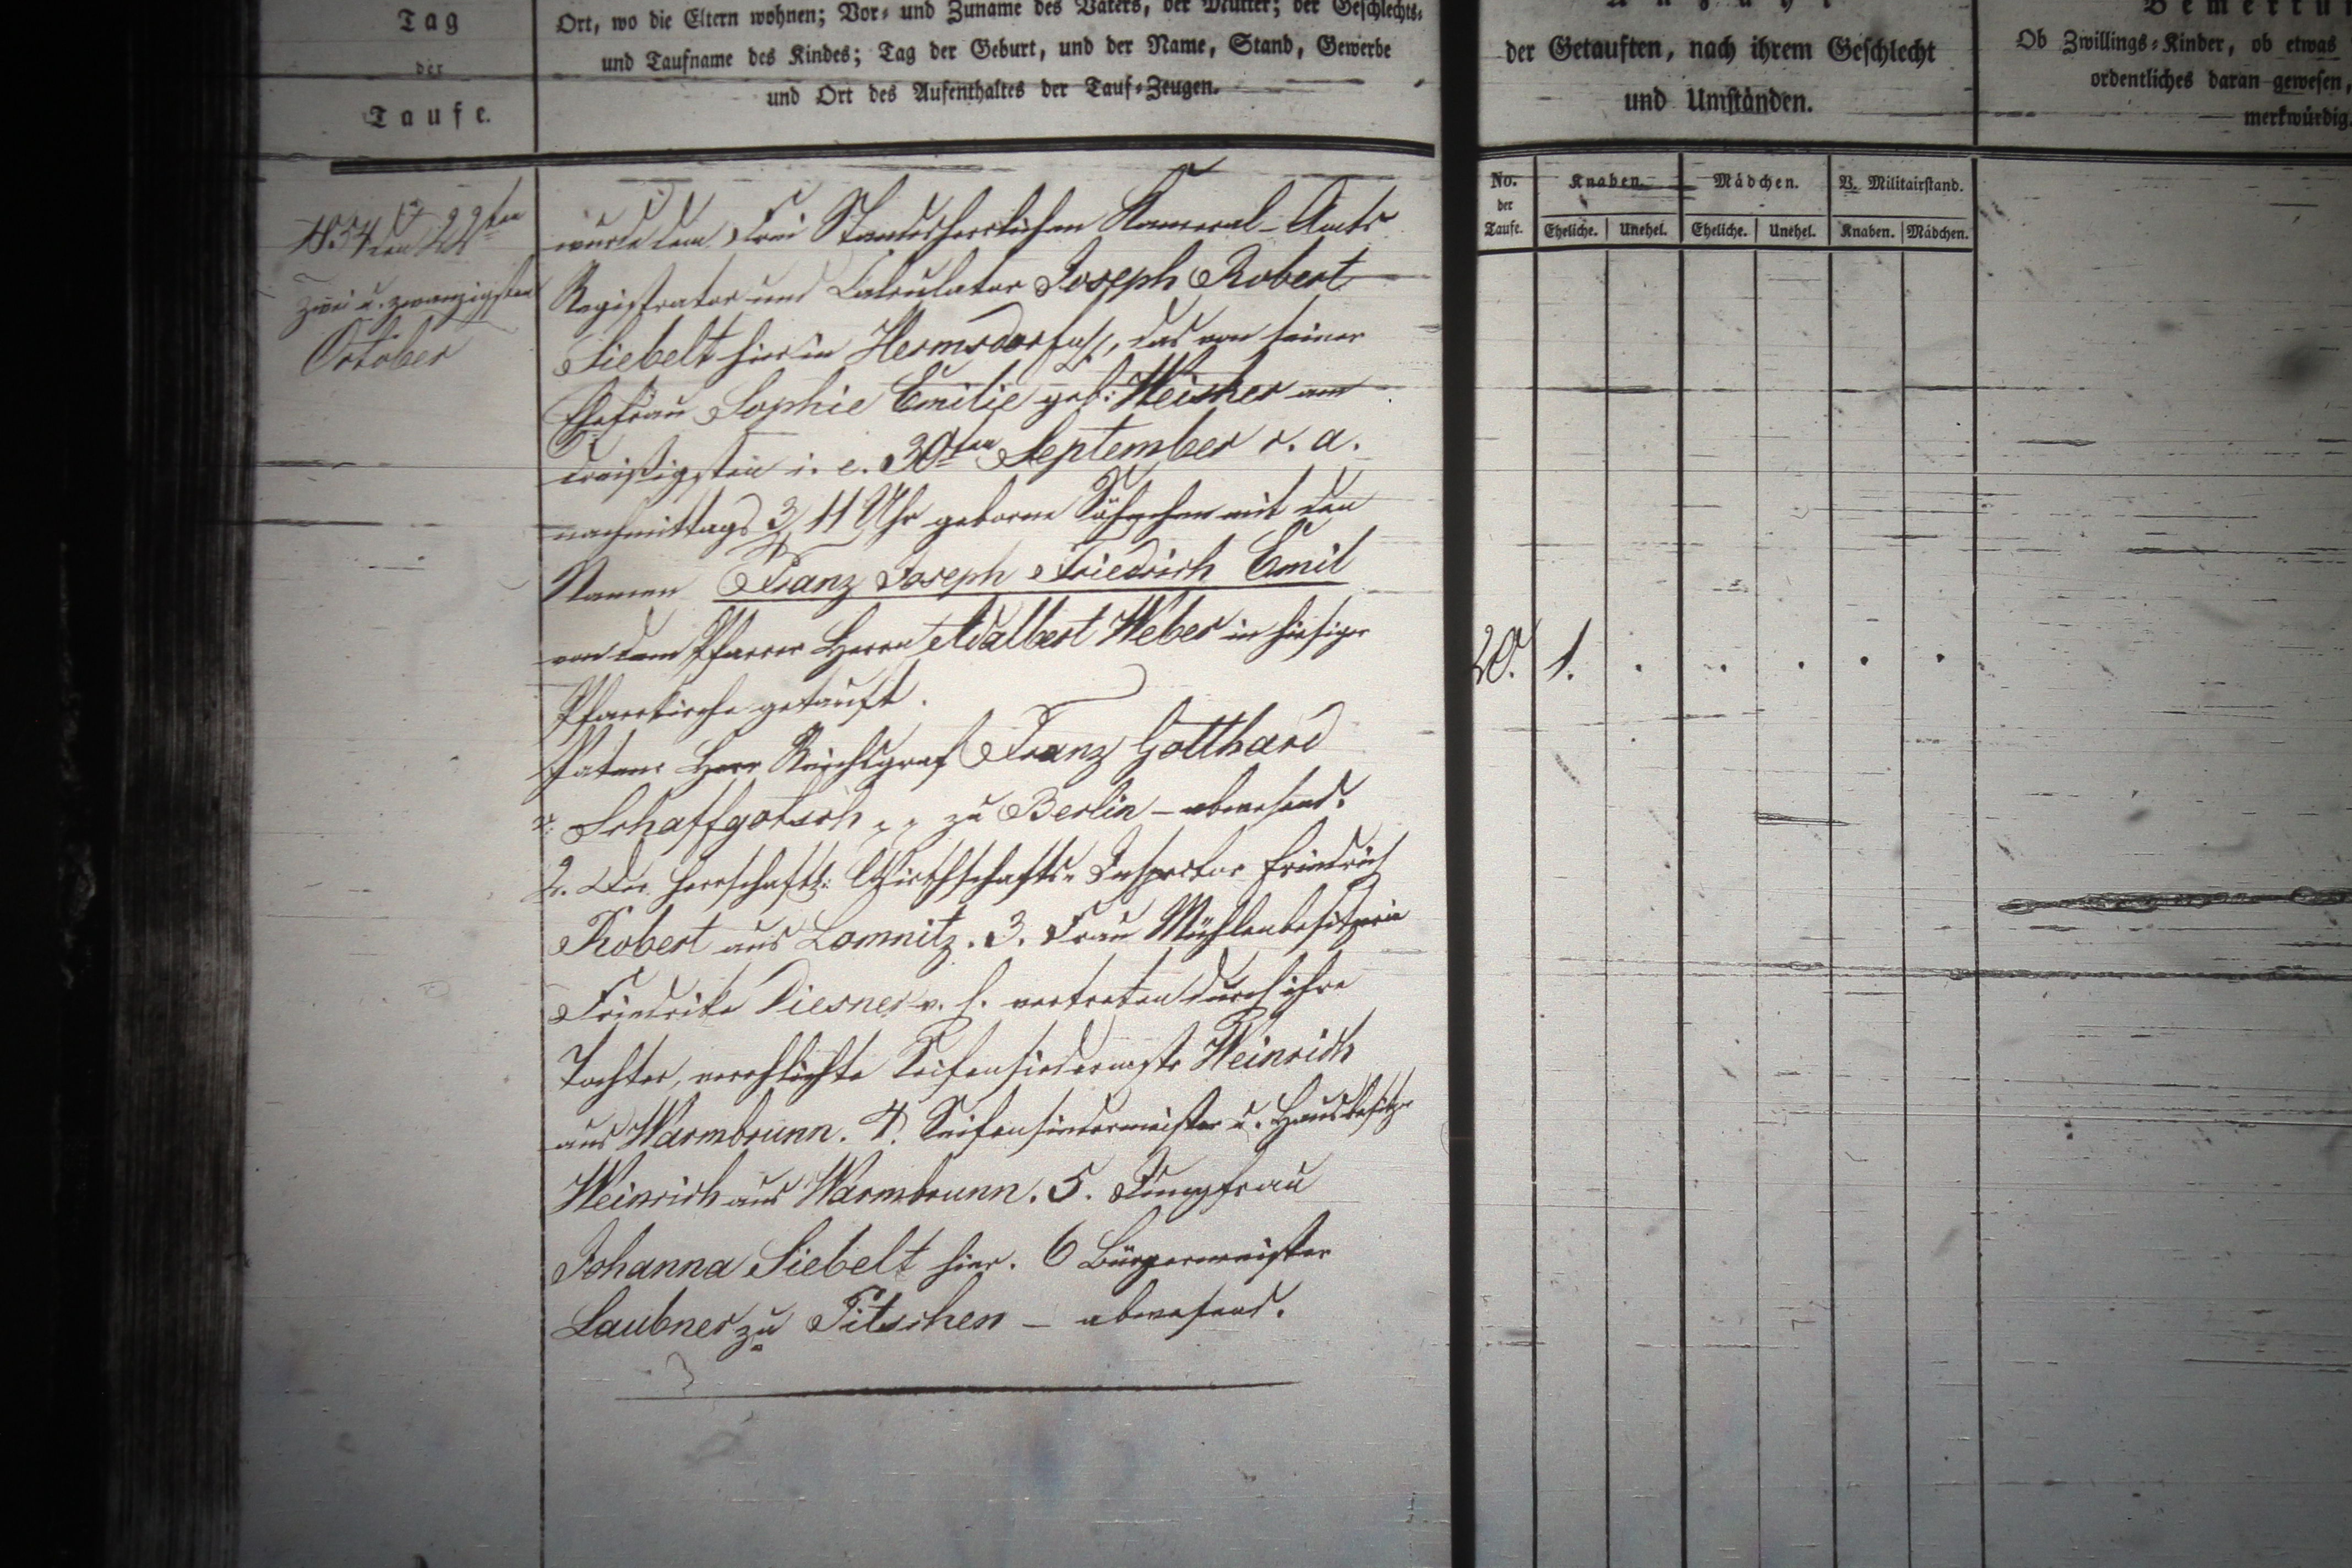 Tag
der
Taufe.
Ort, wo die Eltern wohnen; Vor- und Zuname des Vaters, der Mutter; der Geschlechts-
und Taufname des Kindes; Tag der Geburt, und der Name, Stand, Gewerbe
und Ort des Aufenthaltes der Tauf-Zeugen.
1854 den 22ten
zwei u. zwanzigsten
October
wurde dem Frei Standesherrlichen Kameral-Amts
Registrator und Calculator Joseph Robert
Siebelt hier in Hermsdorf, das von seiner
Ehefrau Sophie Emilie geb: Weisker am
dreißigsten i. e. 30ten September c. a.
nachmittags 3/4 11 Uhr geborne Söhnchen mit den
Namen Franz Joseph Friedrich Emil
von dem Pfarrer Herrn Adalbert Weber in hiesiger
Pfarrkirche getauft.
Paten: Herr Reichsgraf Franz Gotthard
v: Schaffgotsch zu Berlin - abwesend.
2. Der herrschaftl: Wirthschafts-Inspector Friedrich
Robert aus Lomnitz. 3. Frau Mühlenbesitzerin
Friedrike Diesner v. h. vertreten durch ihre
Tochter, verehlichte Seifensiedermstr Weinrich
aus Warmbrunn. 4. Seifensiedermeister u. Hausbesitzer
Weinrich aus Warmbrunn. 5. Jungfrau
Johanna Siebelt hier. 6 Bürgermeister
Laubner zu Titschen - abwesend.
der Getauften, nach ihrem Geschlecht
und Umständen.
No. der Taufe. Knaben. Mädchen. V. Militairstand.
Eheliche. Unehel. Eheliche. Unehel. Knaben. Mädchen.
20. 1. . . . . .
Ob Zwillings-Kinder, ob etwas
ordentliches daran gewesen,
merkwürdig.